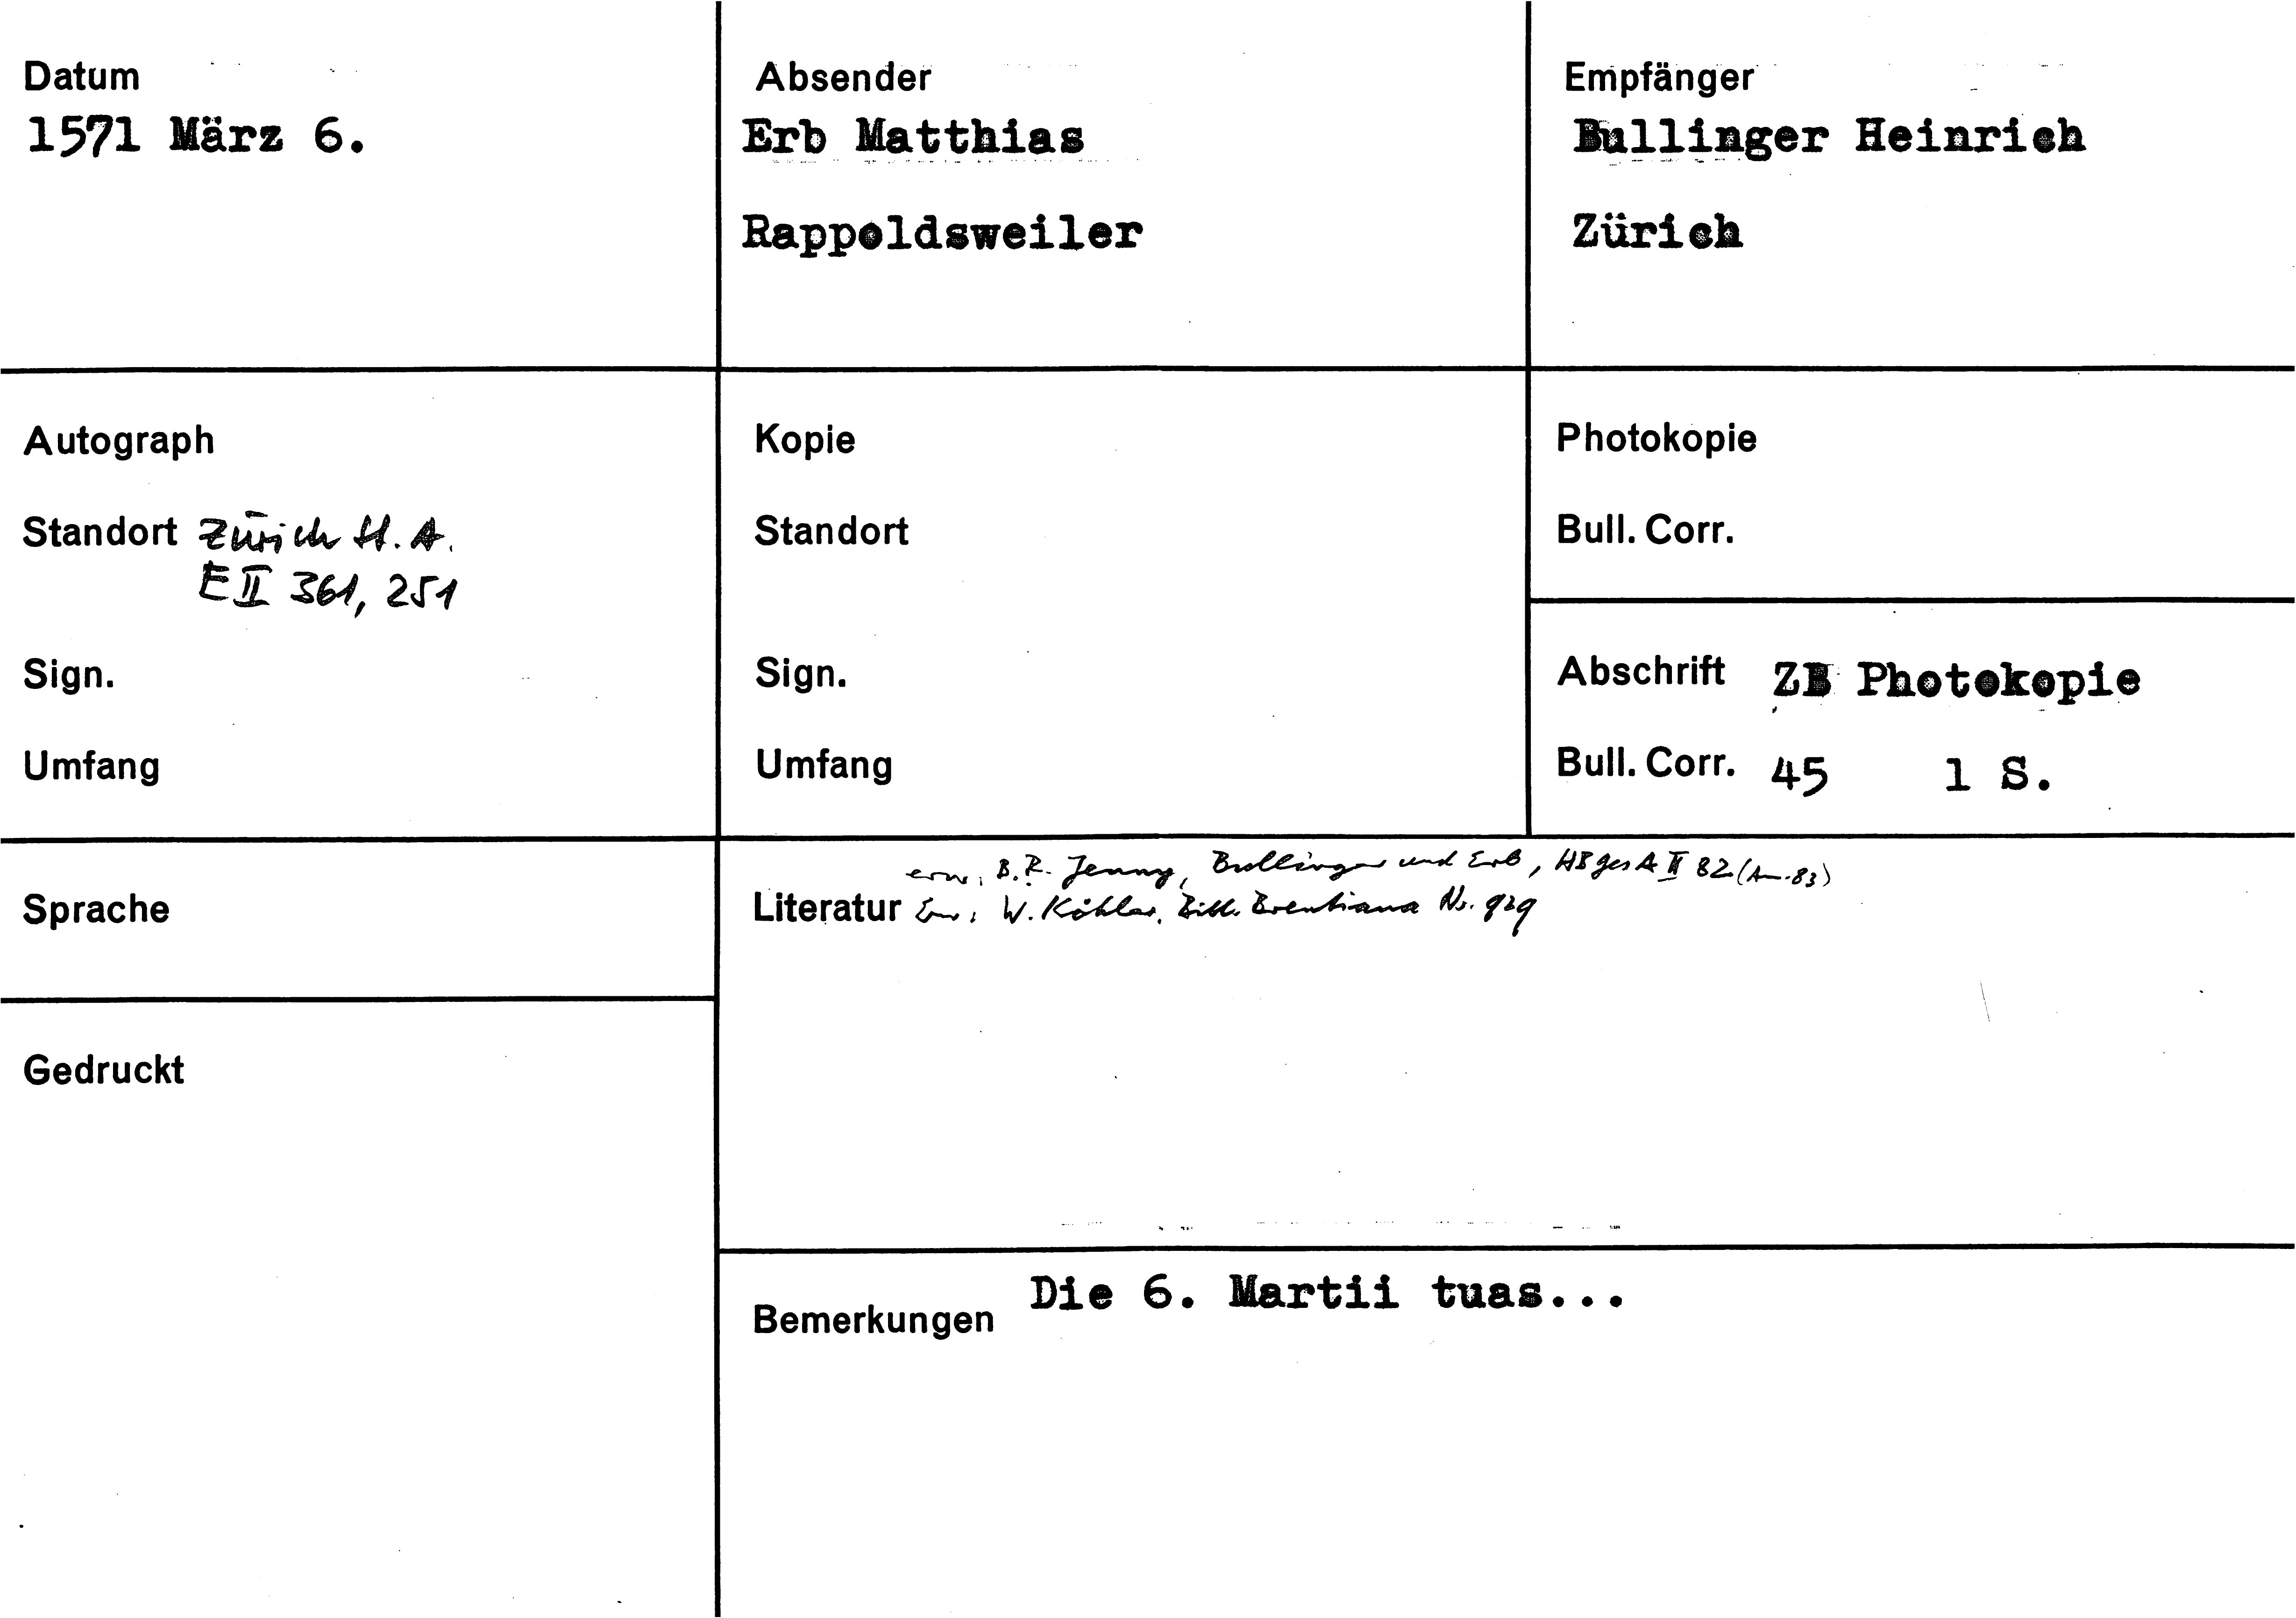 Datum
1571 März 6.
Absender
Erb Matthias
Rappoldsweiler
Empfänger
Bullinger Heinrich
Zürich
Autograph
Standort Zürich St. A.
E II 361, 251
Sign.
Umfang
Kopie
Standort
Sign.
Umfang
Photokopie
Bull. Corr.
Abschrift ZB Photokopie
Bull. Corr. 45 1 S.
Sprache
Gedruckt
erw. B. R. Jenny, Bullinger und Erb, HBgesA II 82 (Anm. 83)
Literatur Erw: W. Köhler, Bibl. Brentiana Nr. 929
Bemerkungen Die 6. Martii tuas...